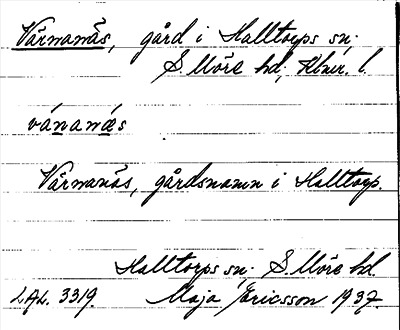 Värnanäs, gård i Halltorps sn.
S. Möre hd, Klmr. l.
vánanǽs
Värnanäs, gårdsnamn i Halltorp.
Halltorps sn. S. Möre hd.
LAL. 3319. Maja Ericsson 1937.